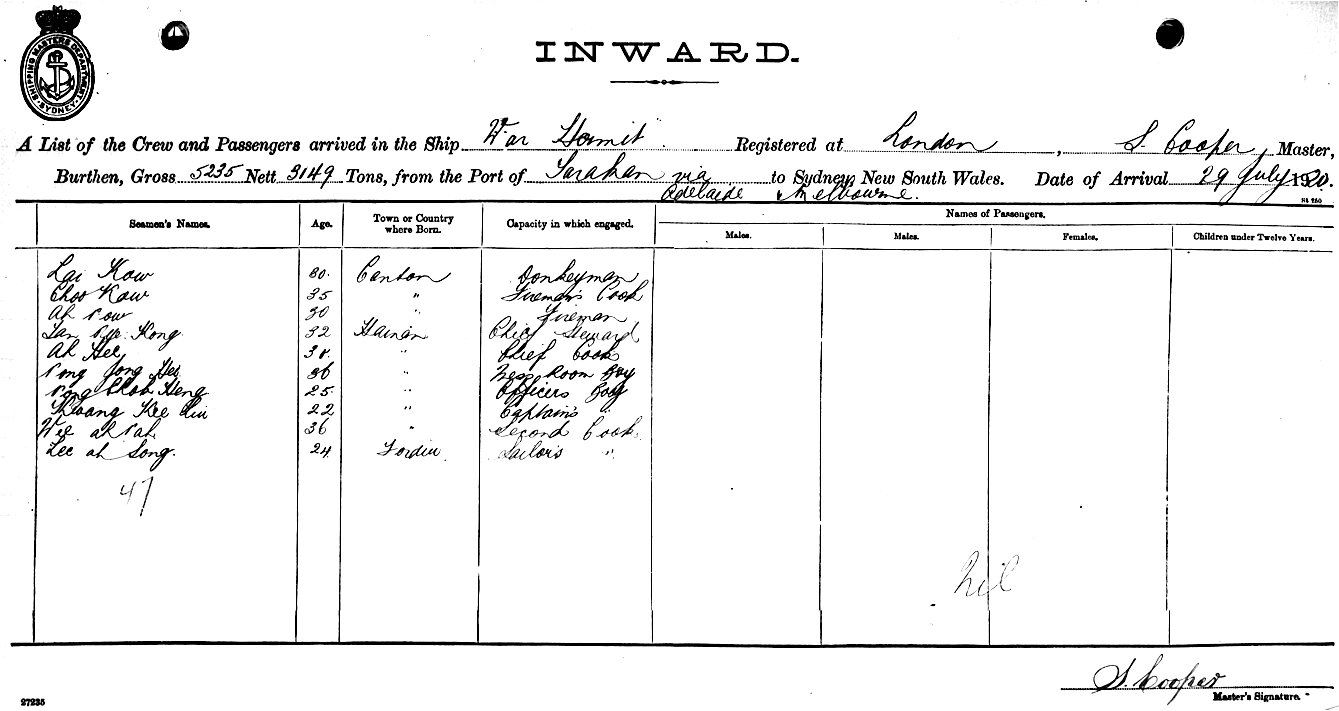 SHIPPING MASTERS DEPARTMENT · SYDNEY ·
INWARD.
A List of the Crew and Passengers arrived in the Ship War Hermit Registered at London, S. Cooper Master,
Burthen, Gross 5235 Nett 3149 Tons, from the Port of Tarakan via Adelaide & Melbourne. to Sydney, New South Wales. Date of Arrival 29 July 1920.
Seamen's Names. Age. Town or Country where Born. Capacity in which engaged. Names of Passengers.
Males. Males. Females. Children under Twelve Years.
Lai Kow 30. Canton Donkeyman
Choo Kow 35 " Fireman's Cook
Ah 30 " Fireman
Kong 32 Hainan Chief Steward
Ah Hee 38. " Chief Cook
36 " Mess Room Boy
Heng 25. " Officers Boy
Kwang Kee 22 " Captain's "
Wee ah 36 " Second Cook.
Lee ah Song. 24 Sailors "
47
Nil
S. Cooper
Master's Signature.
27235